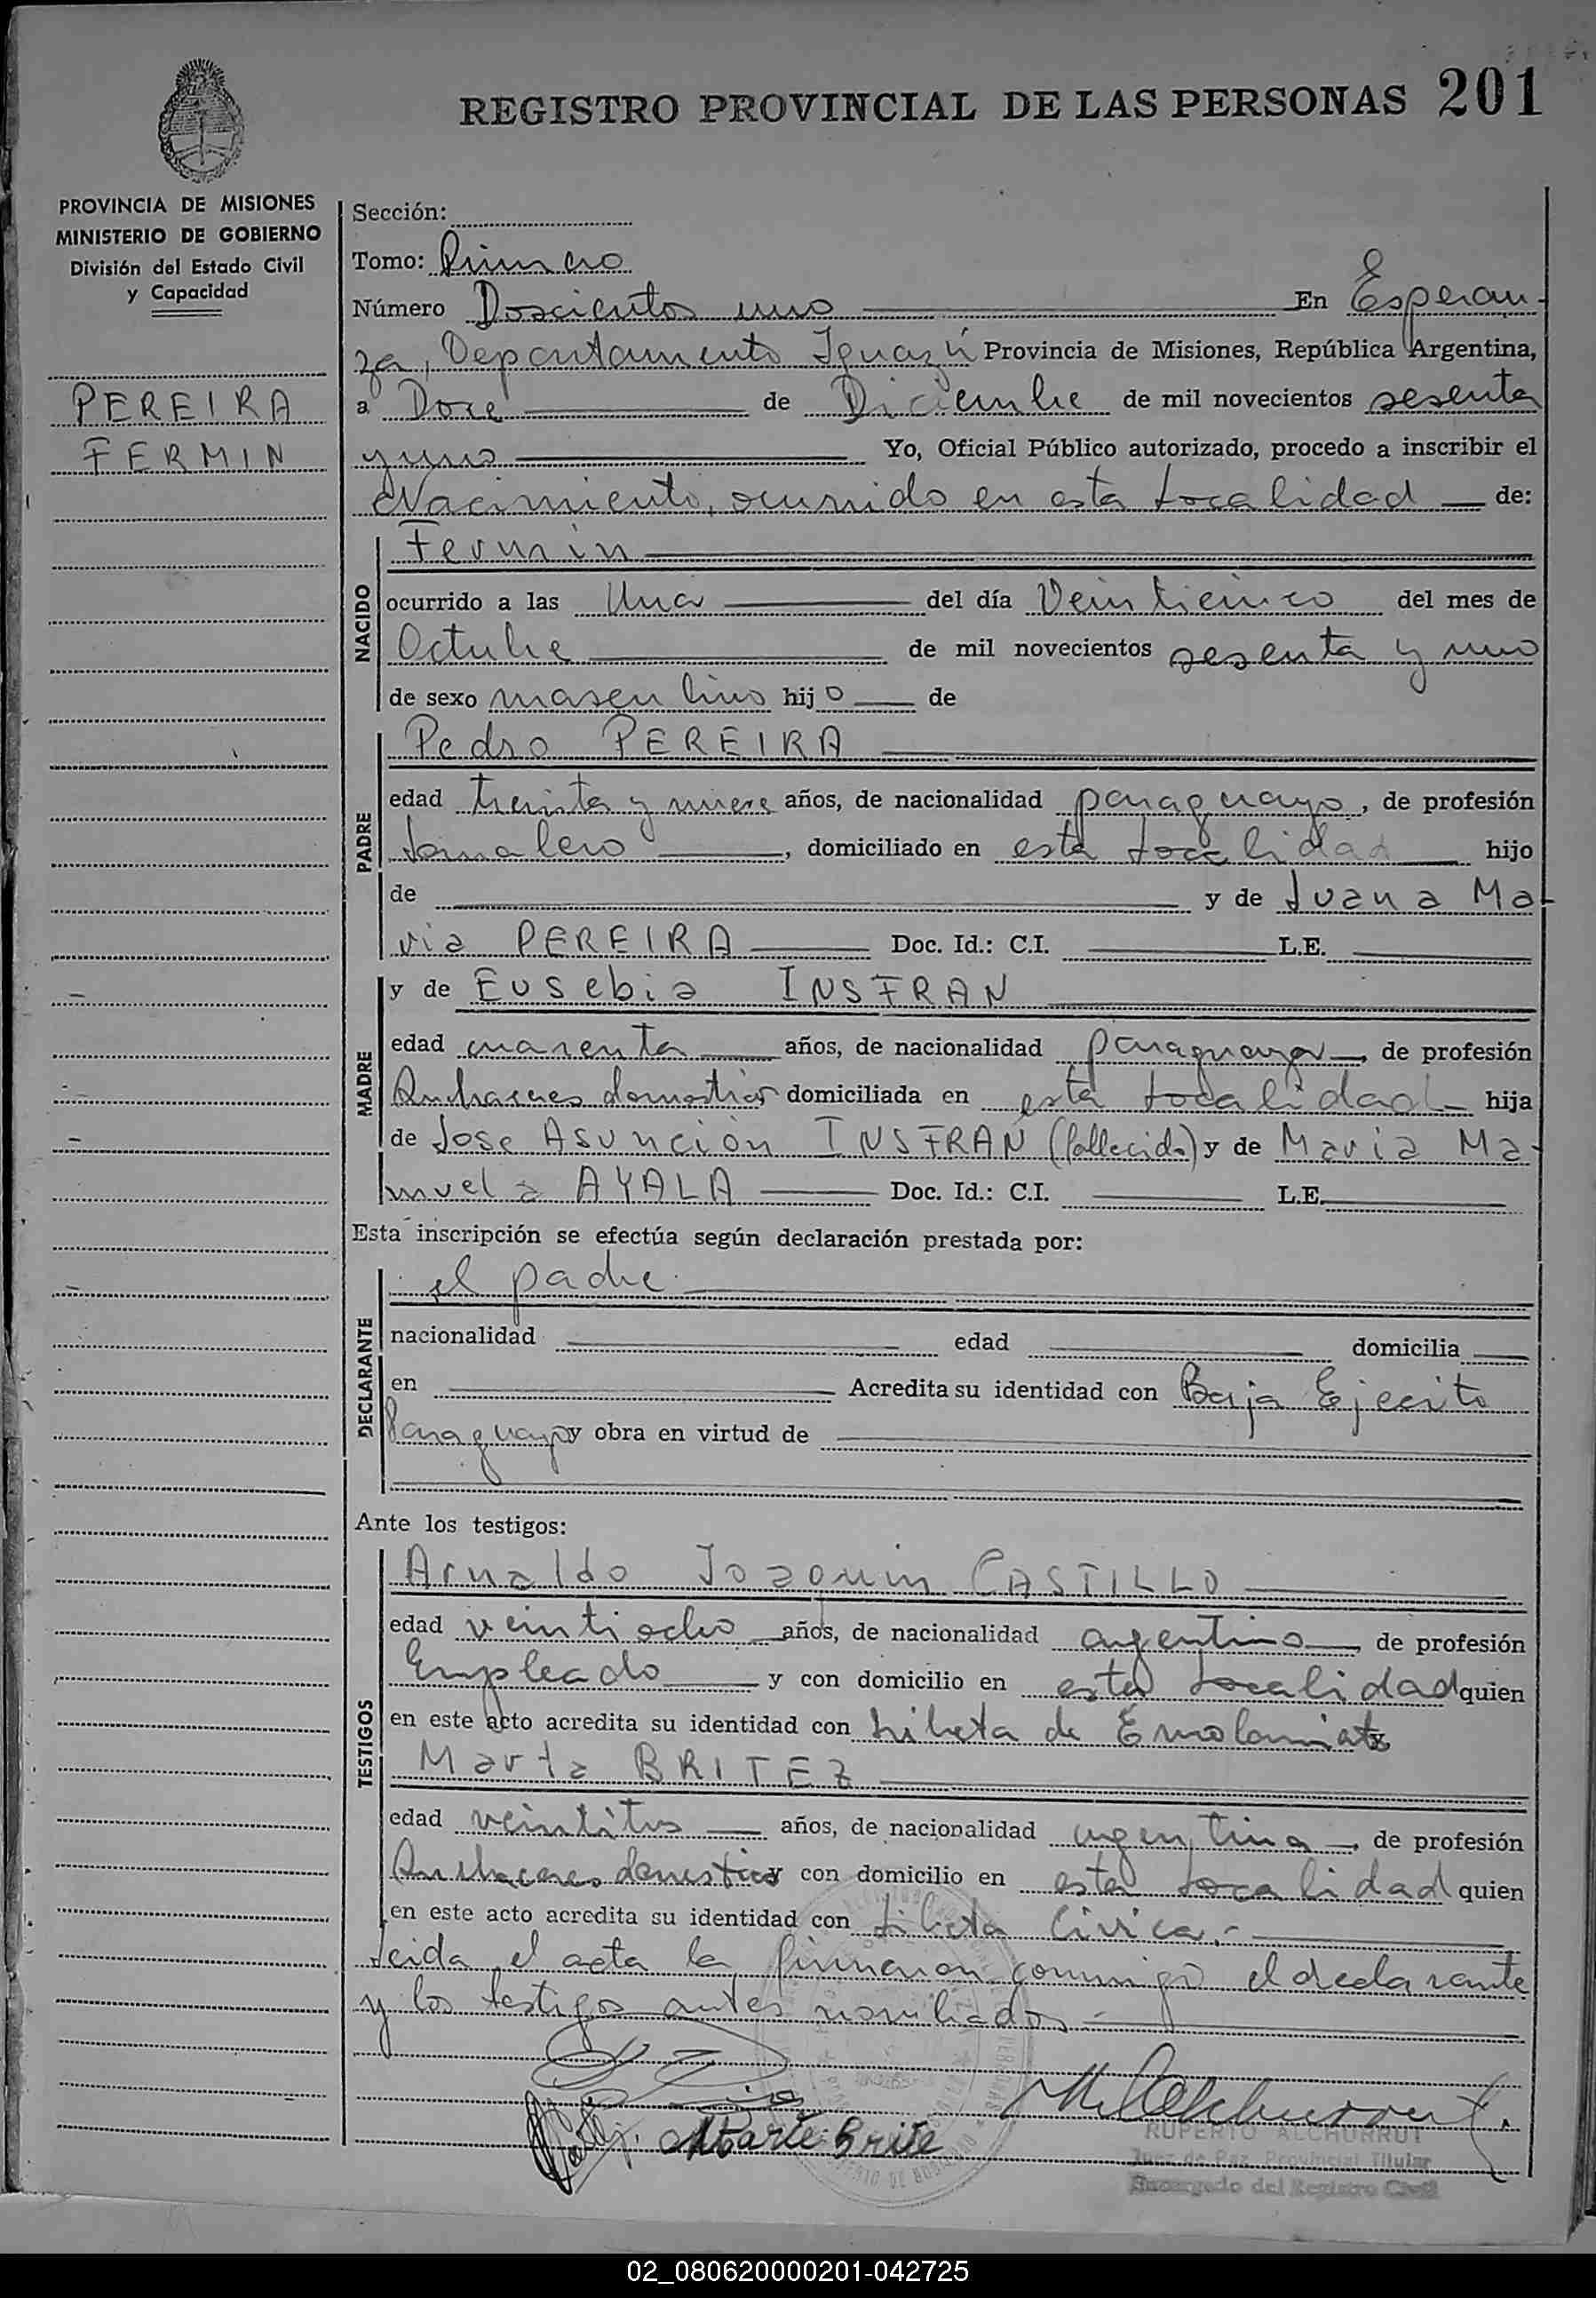 REGISTRO PROVINCIAL DE LAS PERSONAS 201
PROVINCIA DE MISIONES
MINISTERIO DE GOBIERNO
División del Estado Civil
y Capacidad
PEREIRA
FERMIN
Sección:
Tomo: Primero
Número Doscientos uno En Esperan-
za, Departamento Iguazú Provincia de Misiones, República Argentina,
a Doce de Diciembre de mil novecientos sesenta
y uno Yo, Oficial Público autorizado, procedo a inscribir el
Nacimiento, ocurrido en esta localidad de:
NACIDO
Fermin
ocurrido a las Una del día Veinticinco del mes de
Octubre de mil novecientos sesenta y uno
de sexo masculino hijo de
PADRE
Pedro PEREIRA
edad treinta y nueve años, de nacionalidad paraguayo, de profesión
Jornalero, domiciliado en esta localidad hijo
de y de Juana Ma-
ria PEREIRA Doc. Id.: C.I. L.E.
MADRE
y de Eusebia INSFRAN
edad cuarenta años, de nacionalidad paraguaya, de profesión
Quehaceres domesticos domiciliada en esta localidad hija
de Jose Asunción INSFRAN (fallecido) y de Maria Ma-
nuela AYALA Doc. Id.: C.I. L.E.
Esta inscripción se efectúa según declaración prestada por:
DECLARANTE
el padre
nacionalidad edad domicilia
en Acredita su identidad con Baja Ejercito
Paraguayo y obra en virtud de
Ante los testigos:
TESTIGOS
Arnaldo Joaquin CASTILLO
edad veintiocho años, de nacionalidad argentino, de profesión
Empleado y con domicilio en esta localidad quien
en este acto acredita su identidad con Libreta de Enrolamiento
Marta BRITEZ
edad veintitres años, de nacionalidad argentina, de profesión
Quehaceres domesticos y con domicilio en esta localidad quien
en este acto acredita su identidad con Libreta Civica.-
Leida el acta la firmaron conmigo el declarante
y los testigos antes nombrados.-
Marte Brite
RUPERTO ALCHURRUT
Juez de Paz Provincial Titular
Encargado del Registro Civil
02_080620000201-042725